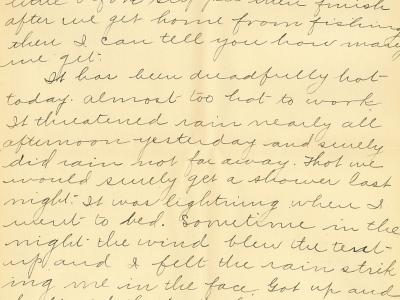 little before sleep has then finish
after we get home from fishing
then I can tell you how many
we get.
It has been dreadfully hot
today. almost too hot to work
It threatened rain nearly all
afternoon yesterday and surely
did rain not far away. Thot we
would surely get a shower last
night. It was lightning when I
went to bed. Sometime in the
night the wind blew the tent
up and I felt the rain strik
ing me in the face. Got up and